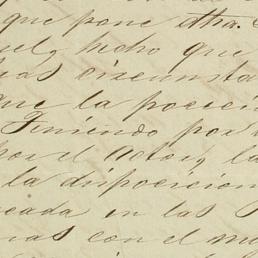 que pone otra.
hecho que
las circunsta
que la poseci
Teniendo por
por el actor, la
la disposicion
eada en las
nas con el me